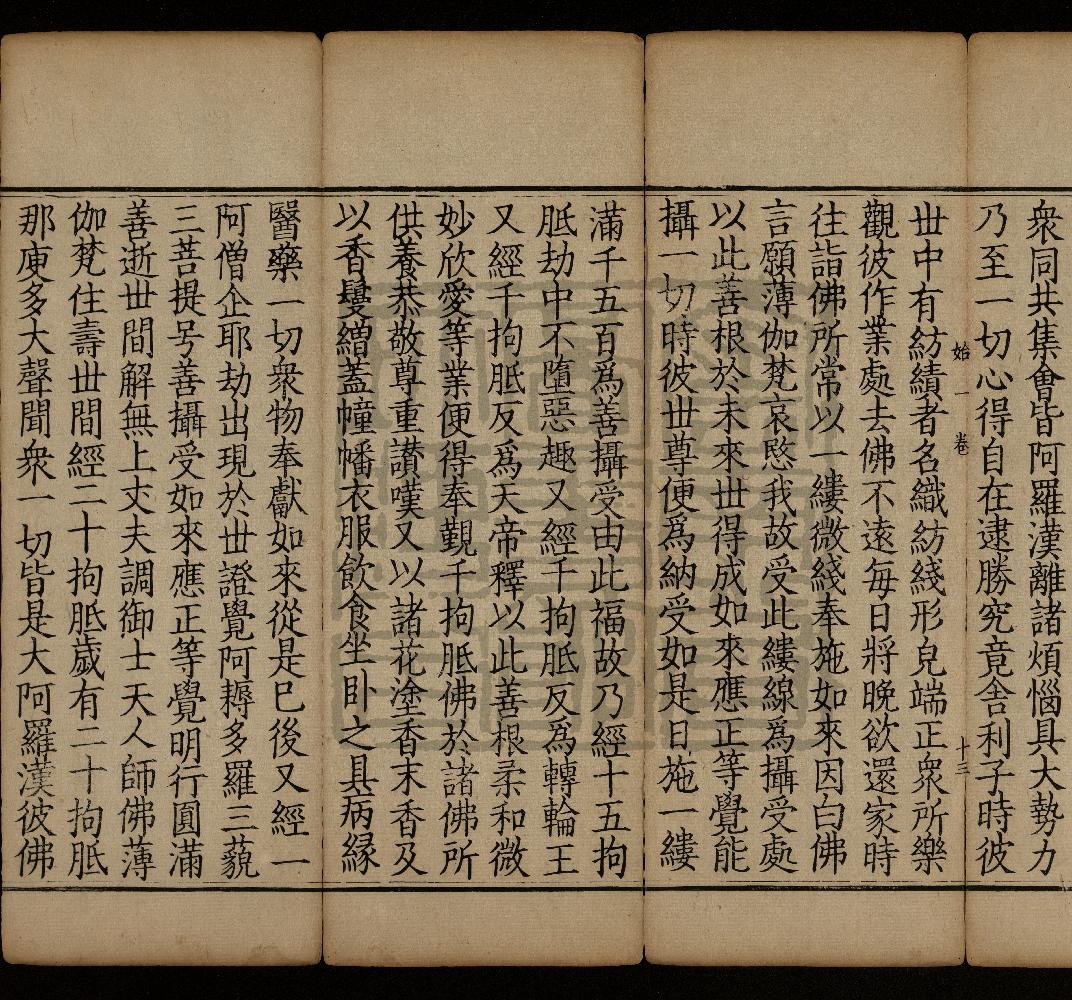 衆同共集會皆阿羅漢離諸煩惱具大勢力
乃至一切心得自在逮勝究竟舎利子時彼
始一 卷 十三
世中有紡績者名織紡綫形皃端正衆所樂
觀彼作業處去佛不遠每日將晚欲還家時
往詣佛所常以一縷微綫奉施如來因白佛
言願薄伽梵哀愍我故受此縷線爲攝受處
以此善根於未來世得成如來應正等覺能
攝一切時彼世尊便爲納受如是日施一縷
滿千五百爲善攝受由此福故乃經十五拘
胝劫中不墮惡趣又經千拘胝反爲轉輪王
又經千拘胝反爲天帝釋以此善根柔和微
妙欣愛等業便得奉覲千拘胝佛於諸佛所
供養恭敬尊重讃嘆又以諸花塗香末香及
以香鬘繒蓋幢幡衣服飲食坐卧之具病縁
醫藥一切衆物奉獻如來從是巳後又經一
阿僧企耶劫出現於世證覺阿耨多羅三藐
三菩提号善攝受如來應正等覺明行圓滿
善逝世間解無上丈夫調御士天人師佛薄
伽梵住壽世間經二十拘胝歲有二十拘胝
那庾多大聲聞衆一切皆是大阿羅漢彼佛